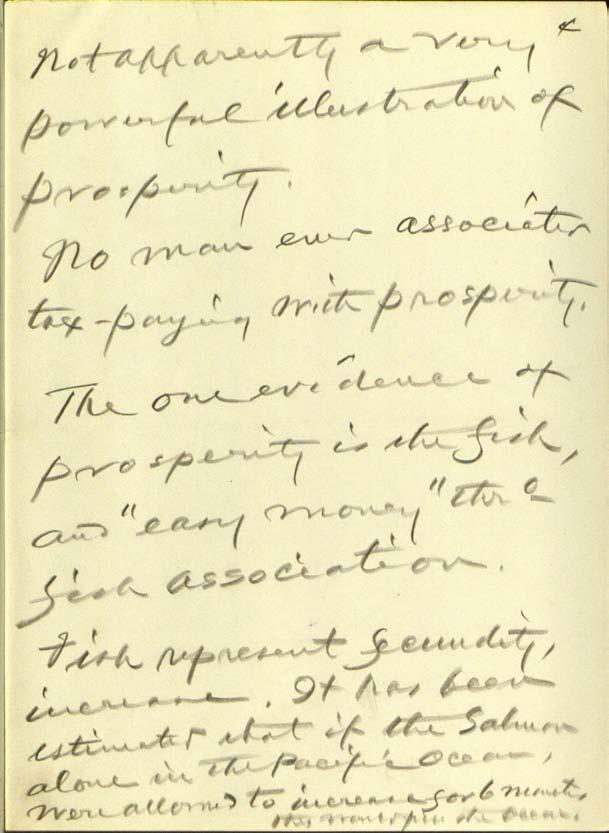 4
Not apparently a very
powerful illustration of
prosperity.
No man ever associates
tax-paying with prosperity.
The one evidence of
prosperity is the fish,
and "easy money" thro
fish association.
Fish represent fecundity,
increase. It has been
estimated that if the Salmon
alone in the Pacific Ocean,
were allowed to increase for 6 months,
they would fill the ocean.